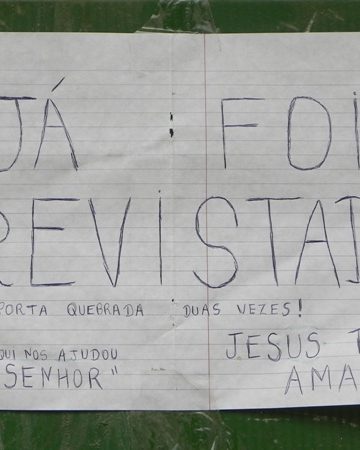 JÁ FOI
REVISTAD
PORTA QUEBRADA DUAS VEZES!
QUI NOS AJUDOU
SENHOR"
JESUS T
AMA